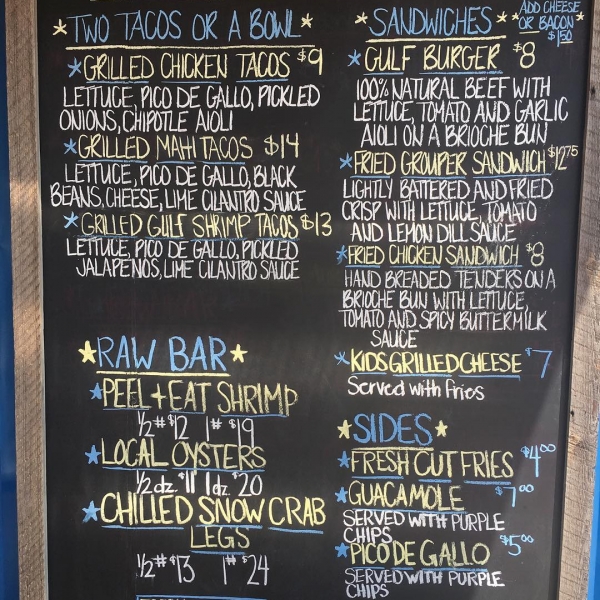 TWO TACOS OR A BOWL
GRILLED CHICKEN TACOS $9
LETTUCE, PICO DE GALLO, PICKLED
ONIONS, CHIPOTLE AIOLI
GRILLED MAHI TACOS $14
LETTUCE, PICO DE GALLO, BLACK
BEANS, CHEESE, LIME CILANTRO SAUCE
GRILLED GULF SHRIMP TACOS $13
LETTUCE, PICO DE GALLO, PICKLED
JALAPEÑOS, LIME CILANTRO SAUCE
RAW BAR
PEEL + EAT SHRIMP
1/2# $12 1# $19
LOCAL OYSTERS
1/2 dz. $11 1 dz. $20
CHILLED SNOW CRAB
LEGS
1/2# $13 1# $24
SANDWICHES
ADD CHEESE
OR BACON
$1.50
GULF BURGER $8
100% NATURAL BEEF WITH
LETTUCE, TOMATO AND GARLIC
AIOLI ON A BRIOCHE BUN
FRIED GROUPER SANDWICH $12.75
LIGHTLY BATTERED AND FRIED
CRISP WITH LETTUCE, TOMATO
AND LEMON DILL SAUCE
FRIED CHICKEN SANDWICH $8
HAND BREADED TENDERS ON A
BRIOCHE BUN WITH LETTUCE,
TOMATO AND SPICY BUTTERMILK
SAUCE
KIDS GRILLED CHEESE $7
Served with fries
SIDES
FRESH CUT FRIES $4.00
GUACAMOLE $7.00
SERVED WITH PURPLE
CHIPS
PICO DE GALLO $5.00
SERVED WITH PURPLE
CHIPS